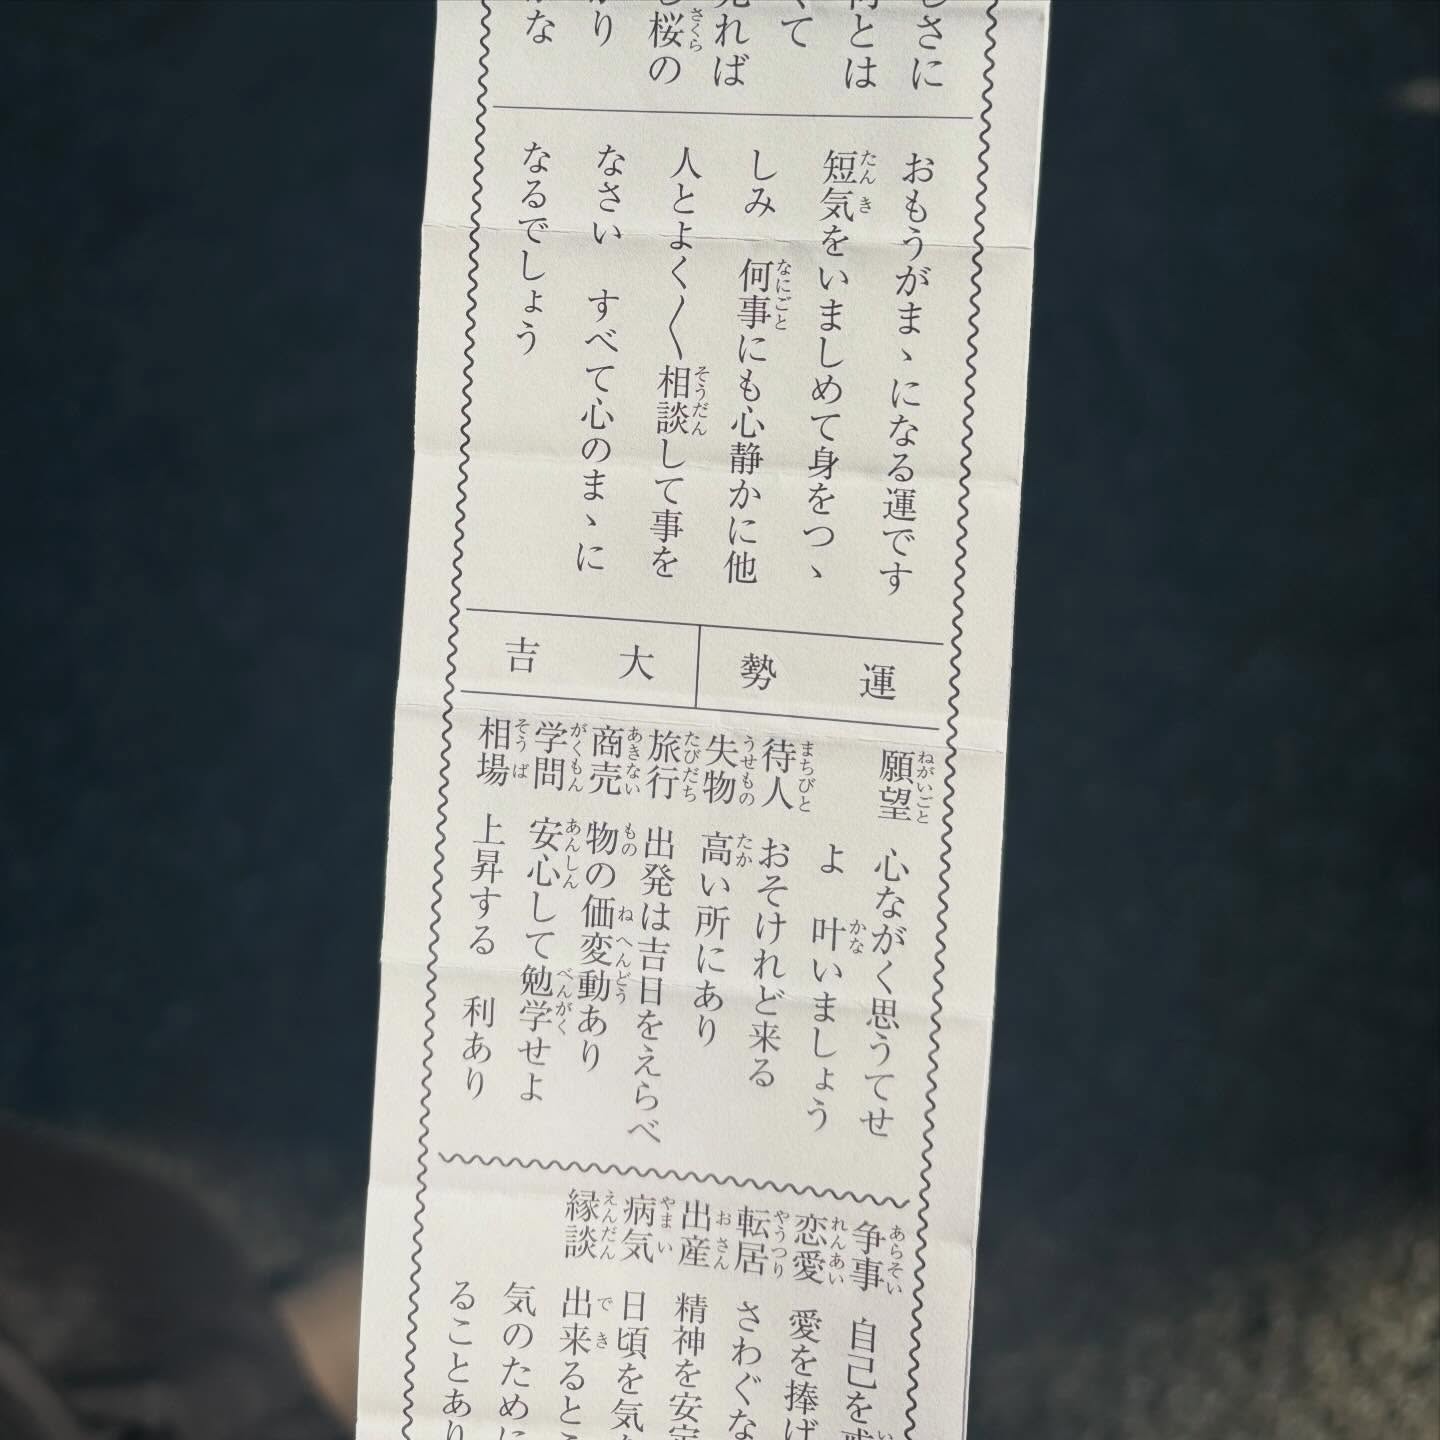 しさに
何とは
くて
見れば
し桜の
かり
かな
おもうがまゝになる運です
短気をいましめて身をつゝ
しみ　何事にも心静かに他
人とよく〱相談して事を
なさい　すべて心のまゝに
なるでしょう
運勢　大吉
願望　心ながく思うてせ
よ　叶いましょう
待人　おそけれど来る
失物　高い所にあり
旅行　出発は吉日をえらべ
商売　物の価変動あり
学問　安心して勉学せよ
相場　上昇する　利あり
争事　自己を戒
恋愛　愛を捧げ
転居　さわぐな
出産　精神を安定
病気　日頃を気
縁談　出来るとこ
気のために
ることあり